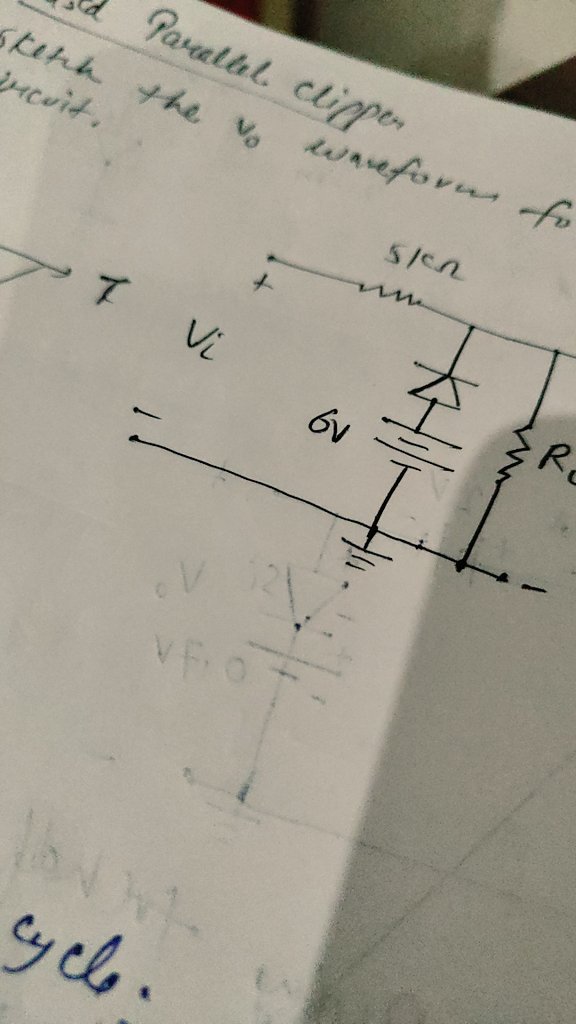 Parallel clipper
sketch the vo waveform fo
circuit.
5kΩ
+
T
Vi
6V
-
-
cycle.